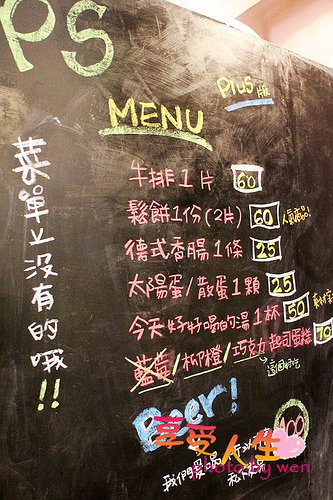 PS
Plus版
MENU
菜單上沒有的哦!!
牛排1片 60
鬆餅1份(2片) 60 人氣商品!
德式香腸1條 25
太陽蛋/散蛋1顆 25
今天好好喝的湯1杯 50
藍莓/柳橙/巧克力 起司蛋糕 70
這個好吃
Beer! 100
享受人生
Photo by wen
我們愛喝